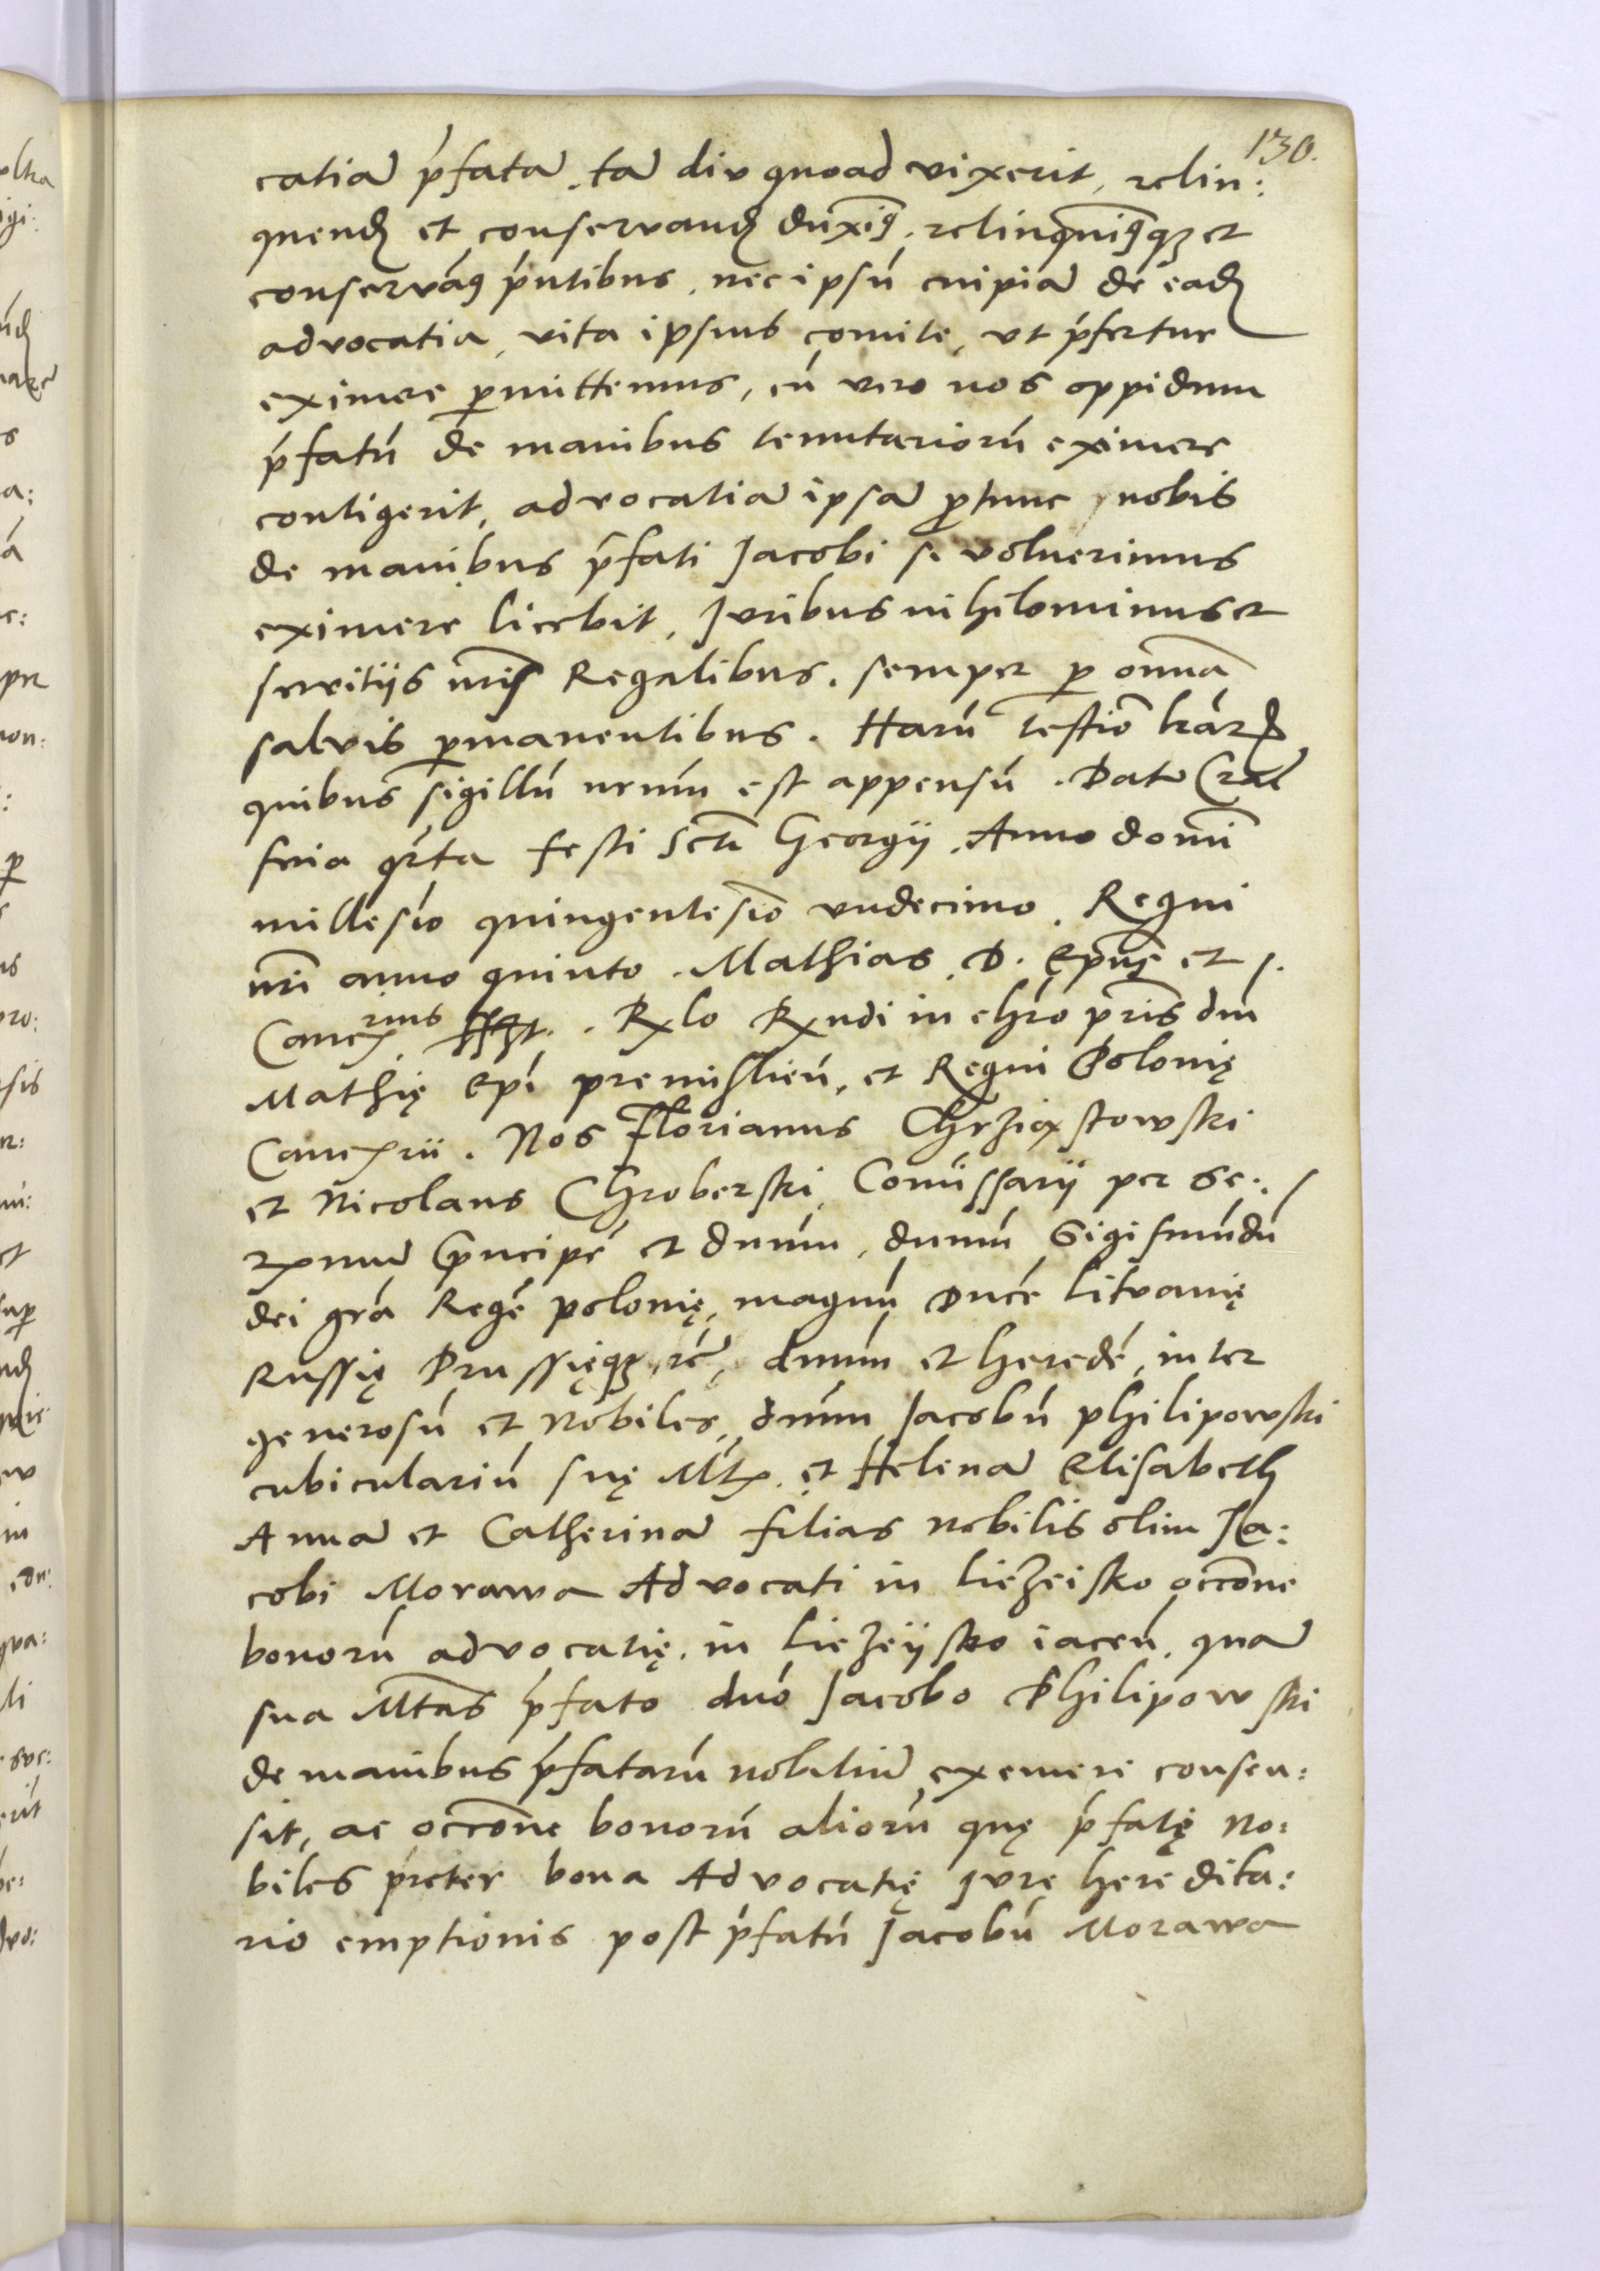 130.
catiā p̄fatā, tā diu quoad vixerit, relin:
quend̄ et conservand̄ dūxim9, relinquim9q3 et
conservām9 p̄ntibus, nec ipsū cuipiā de ead̄
advocatia, vita ipsius comite, ut p̄fertur
eximere p̱mittemus, cū vero nos oppidum
p̄fatū de manibus tenutariorū eximere
contigerit, advocatiā ipsā p̱tunc nobis
de manibus p̄fati Jacobi si voluerimus
eximere licebit, Juribus nihilominus et
servitiis nr̄is Regalibus, semper p̱ omnia
salvis p̱manentibus. Harū testio
quibus sigillū nrūm est appensū. Datū Crac̄
feria q̄rta festi Scti Georgii, Anno domī
millesīo quingentesīo undecimo, Regni
nr̄i anno quinto. Mathias D. Ep̄us et
Canc̄rius. Rlo Rndi in chrō pr̄is dnī
Mathię Epī premislień, et Regni Polonię
Canc̄rii. Nos Florianus Chrziąstowski
et Nicolaus Chroberski, Comissarii per Se:
rnmū Principē et dnūm, dnum Sigismūdū
dei grā Regē polonię, magnū Ducē Litvanię
Russię Prussięq3 ēc, dnūm et heredē, inter
generosū et Nobiles, dnūm Jacobū philipowski
cubiculariū suę Mtis, et Helenā Elisabeth
Annā et Catherinā filias nobilis olim Ja:
cobi Morawa Advocati in Liezeisko occōne
bonorū advocatię, in Liezeiisko iaceń, quā
sua Mtas p̄fato dnō Jacobo Philipowski
de manibus p̄fatarū nobiliū exemere consen:
sit, ac occōne bonorū aliorū quę p̄fatę No:
biles pr̄eter bona Advocatię jure heredita:
rio emptionis post p̄fatū Jacobū Morawa